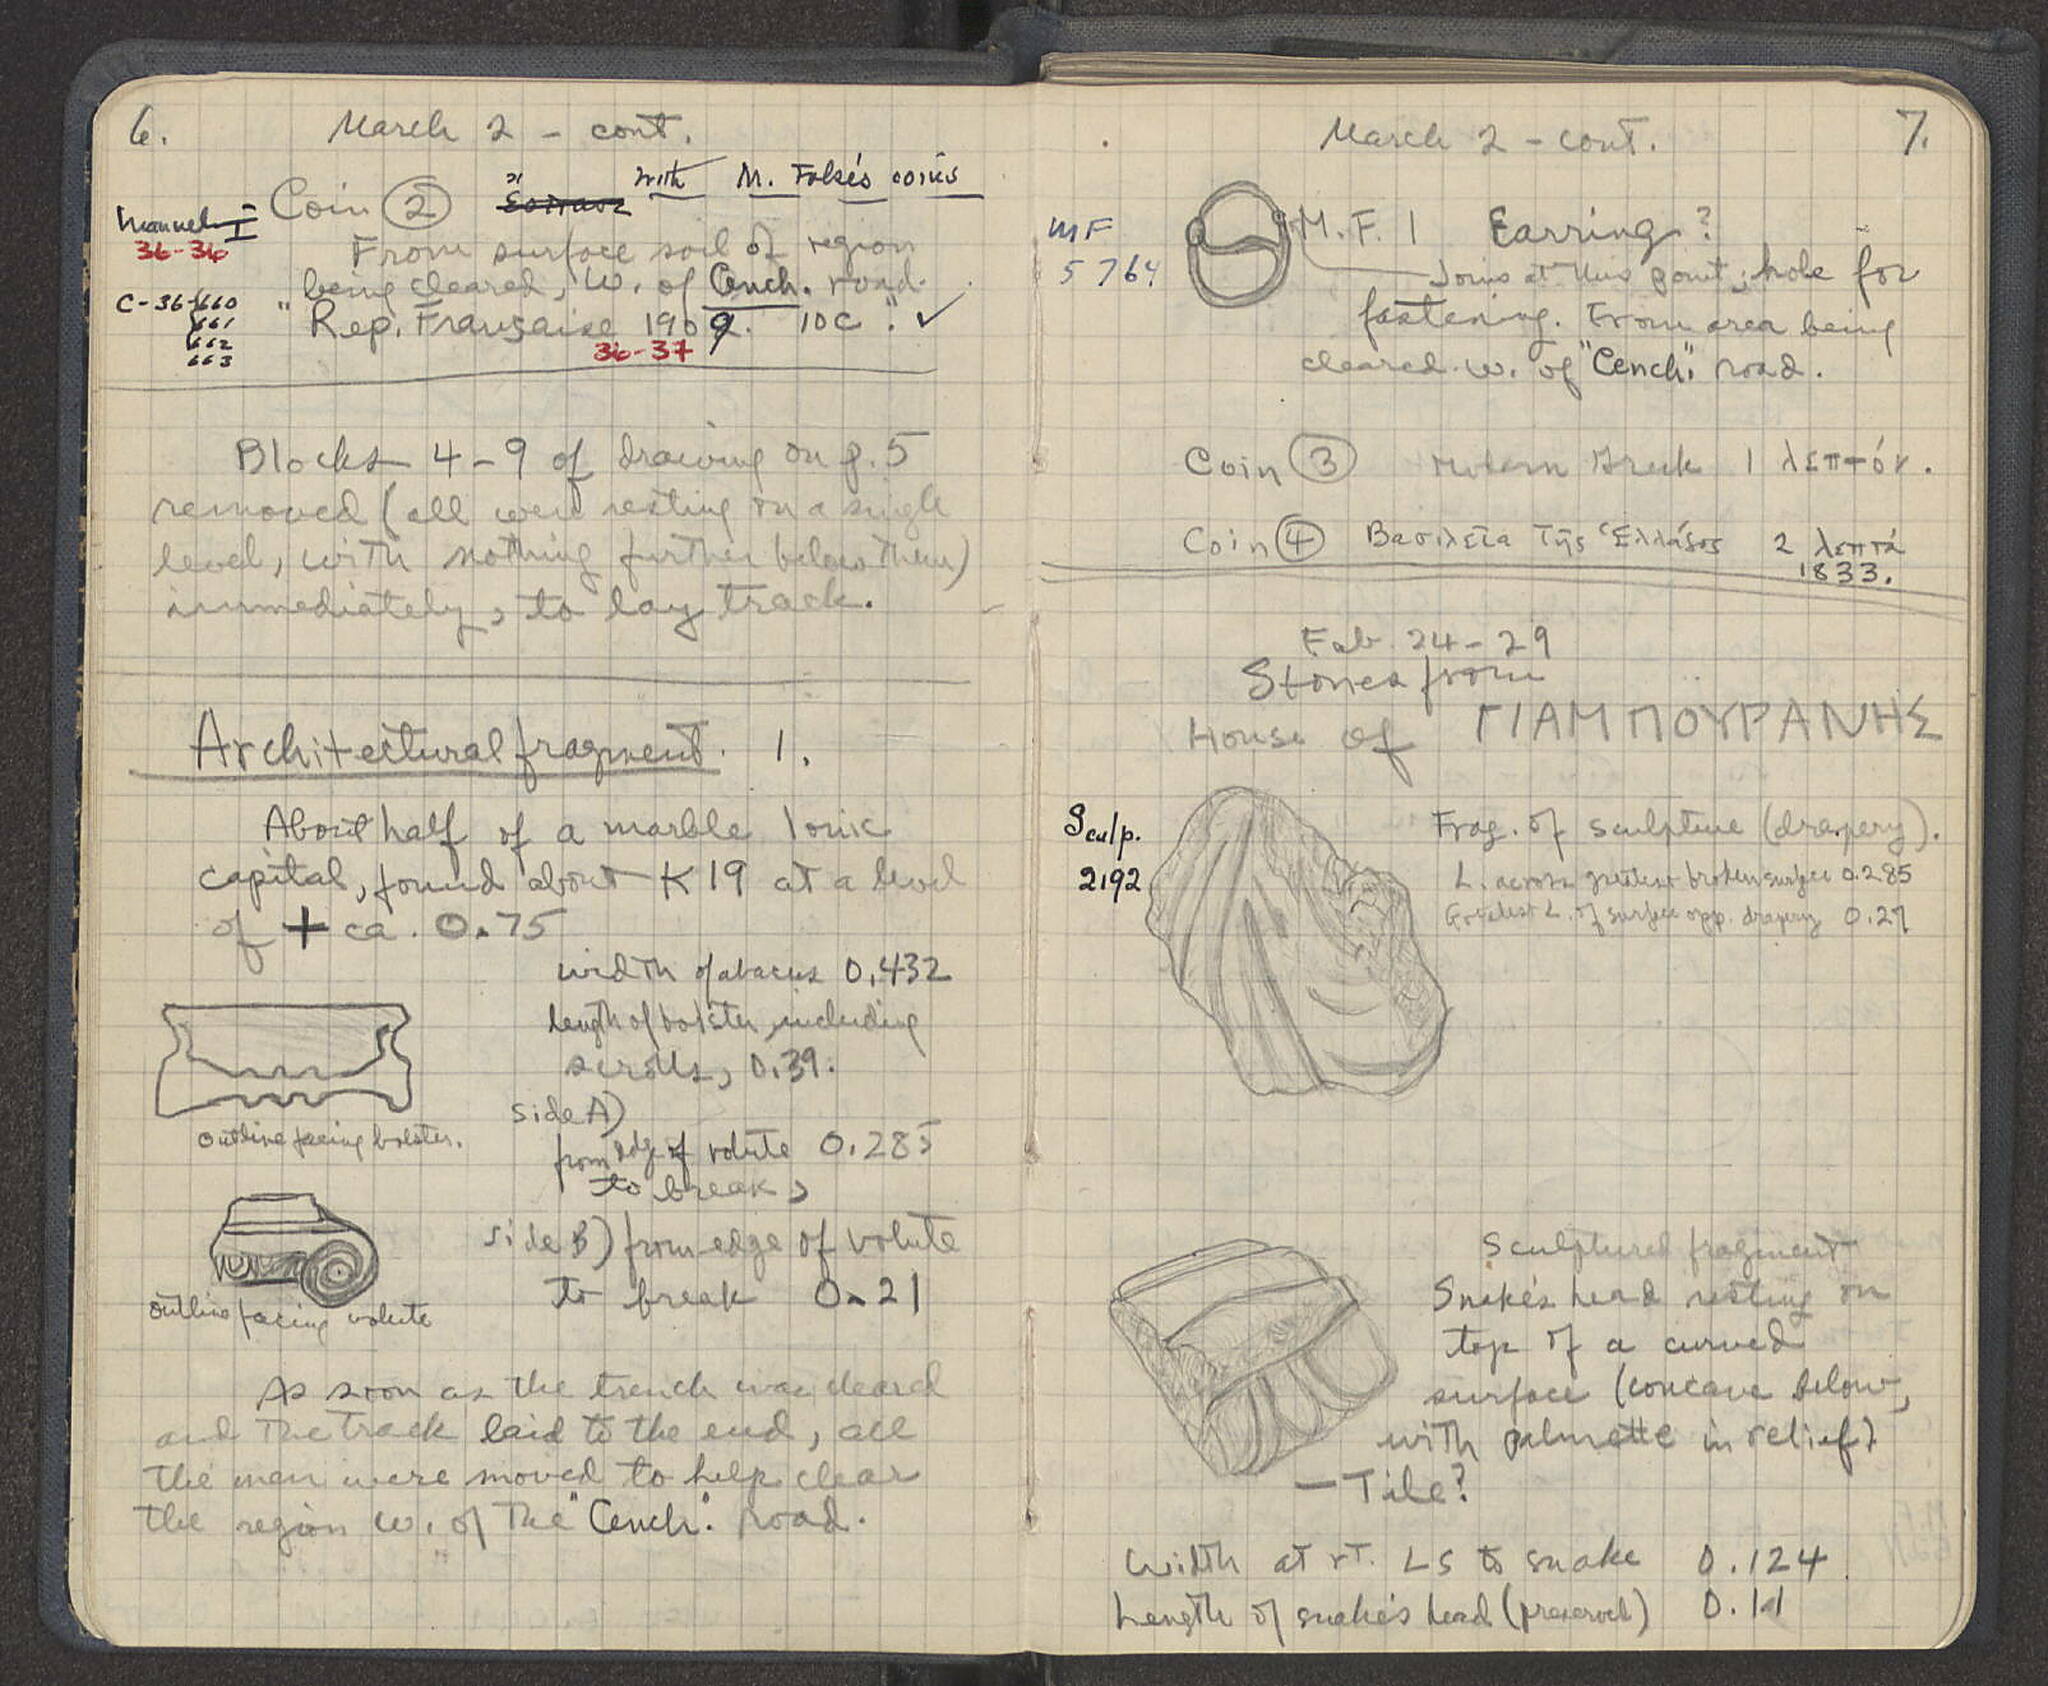 6.
March 2 - cont.
Coin ② with M. Tolsé's coins
Manuel I
36-36
From surface soil of region
being cleared, W. of Cench. road.
C-36-660
661
662
663
"Rep. Française 1909. 10c". ✓
36-37
Blocks 4-9 of drawing on p. 5
removed (all were resting on a single
level, with nothing further below them)
immediately, to lay track.
Architectural fragment. 1.
About half of a marble Ionic
capital, found about K 19 at a level
of + ca. 0.75
width of abacus 0.432
length of bolster, including
scrolls, 0.39.
outline facing bolster.
side A)
from edge of volute 0.285
to break,
side B) from edge of volute
to break 0.21
outline facing volute
As soon as the trench was cleared
and the track laid to the end, all
the men were moved to help clear
the region W. of the "Cench". road.
7.
March 2 - cont.
MF
5764
M.F. 1 Earring?
Joins at this point; hole for
fastening. From area being
cleared W. of "Cench." road.
Coin ③ Modern Greek 1 λεπτόν.
Coin ④ Βασιλεία τῆς Ἑλλάδος 2 λεπτά
1833.
Feb. 24-29
Stones from
House of ΓΙΑΜΠΟΥΡΑΝΗΣ
Sculp.
2192
Frag. of sculpture (drapery).
L. across greatest broken surface 0.285
Greatest L. of surface opp. drapery 0.27
Sculptured fragment
Snake's head resting on
top of a curved
surface (concave below,
with palmette in relief)
- Tile?
Width at rt. Ls to snake 0.124
Length of snake's head (preserved) 0.11